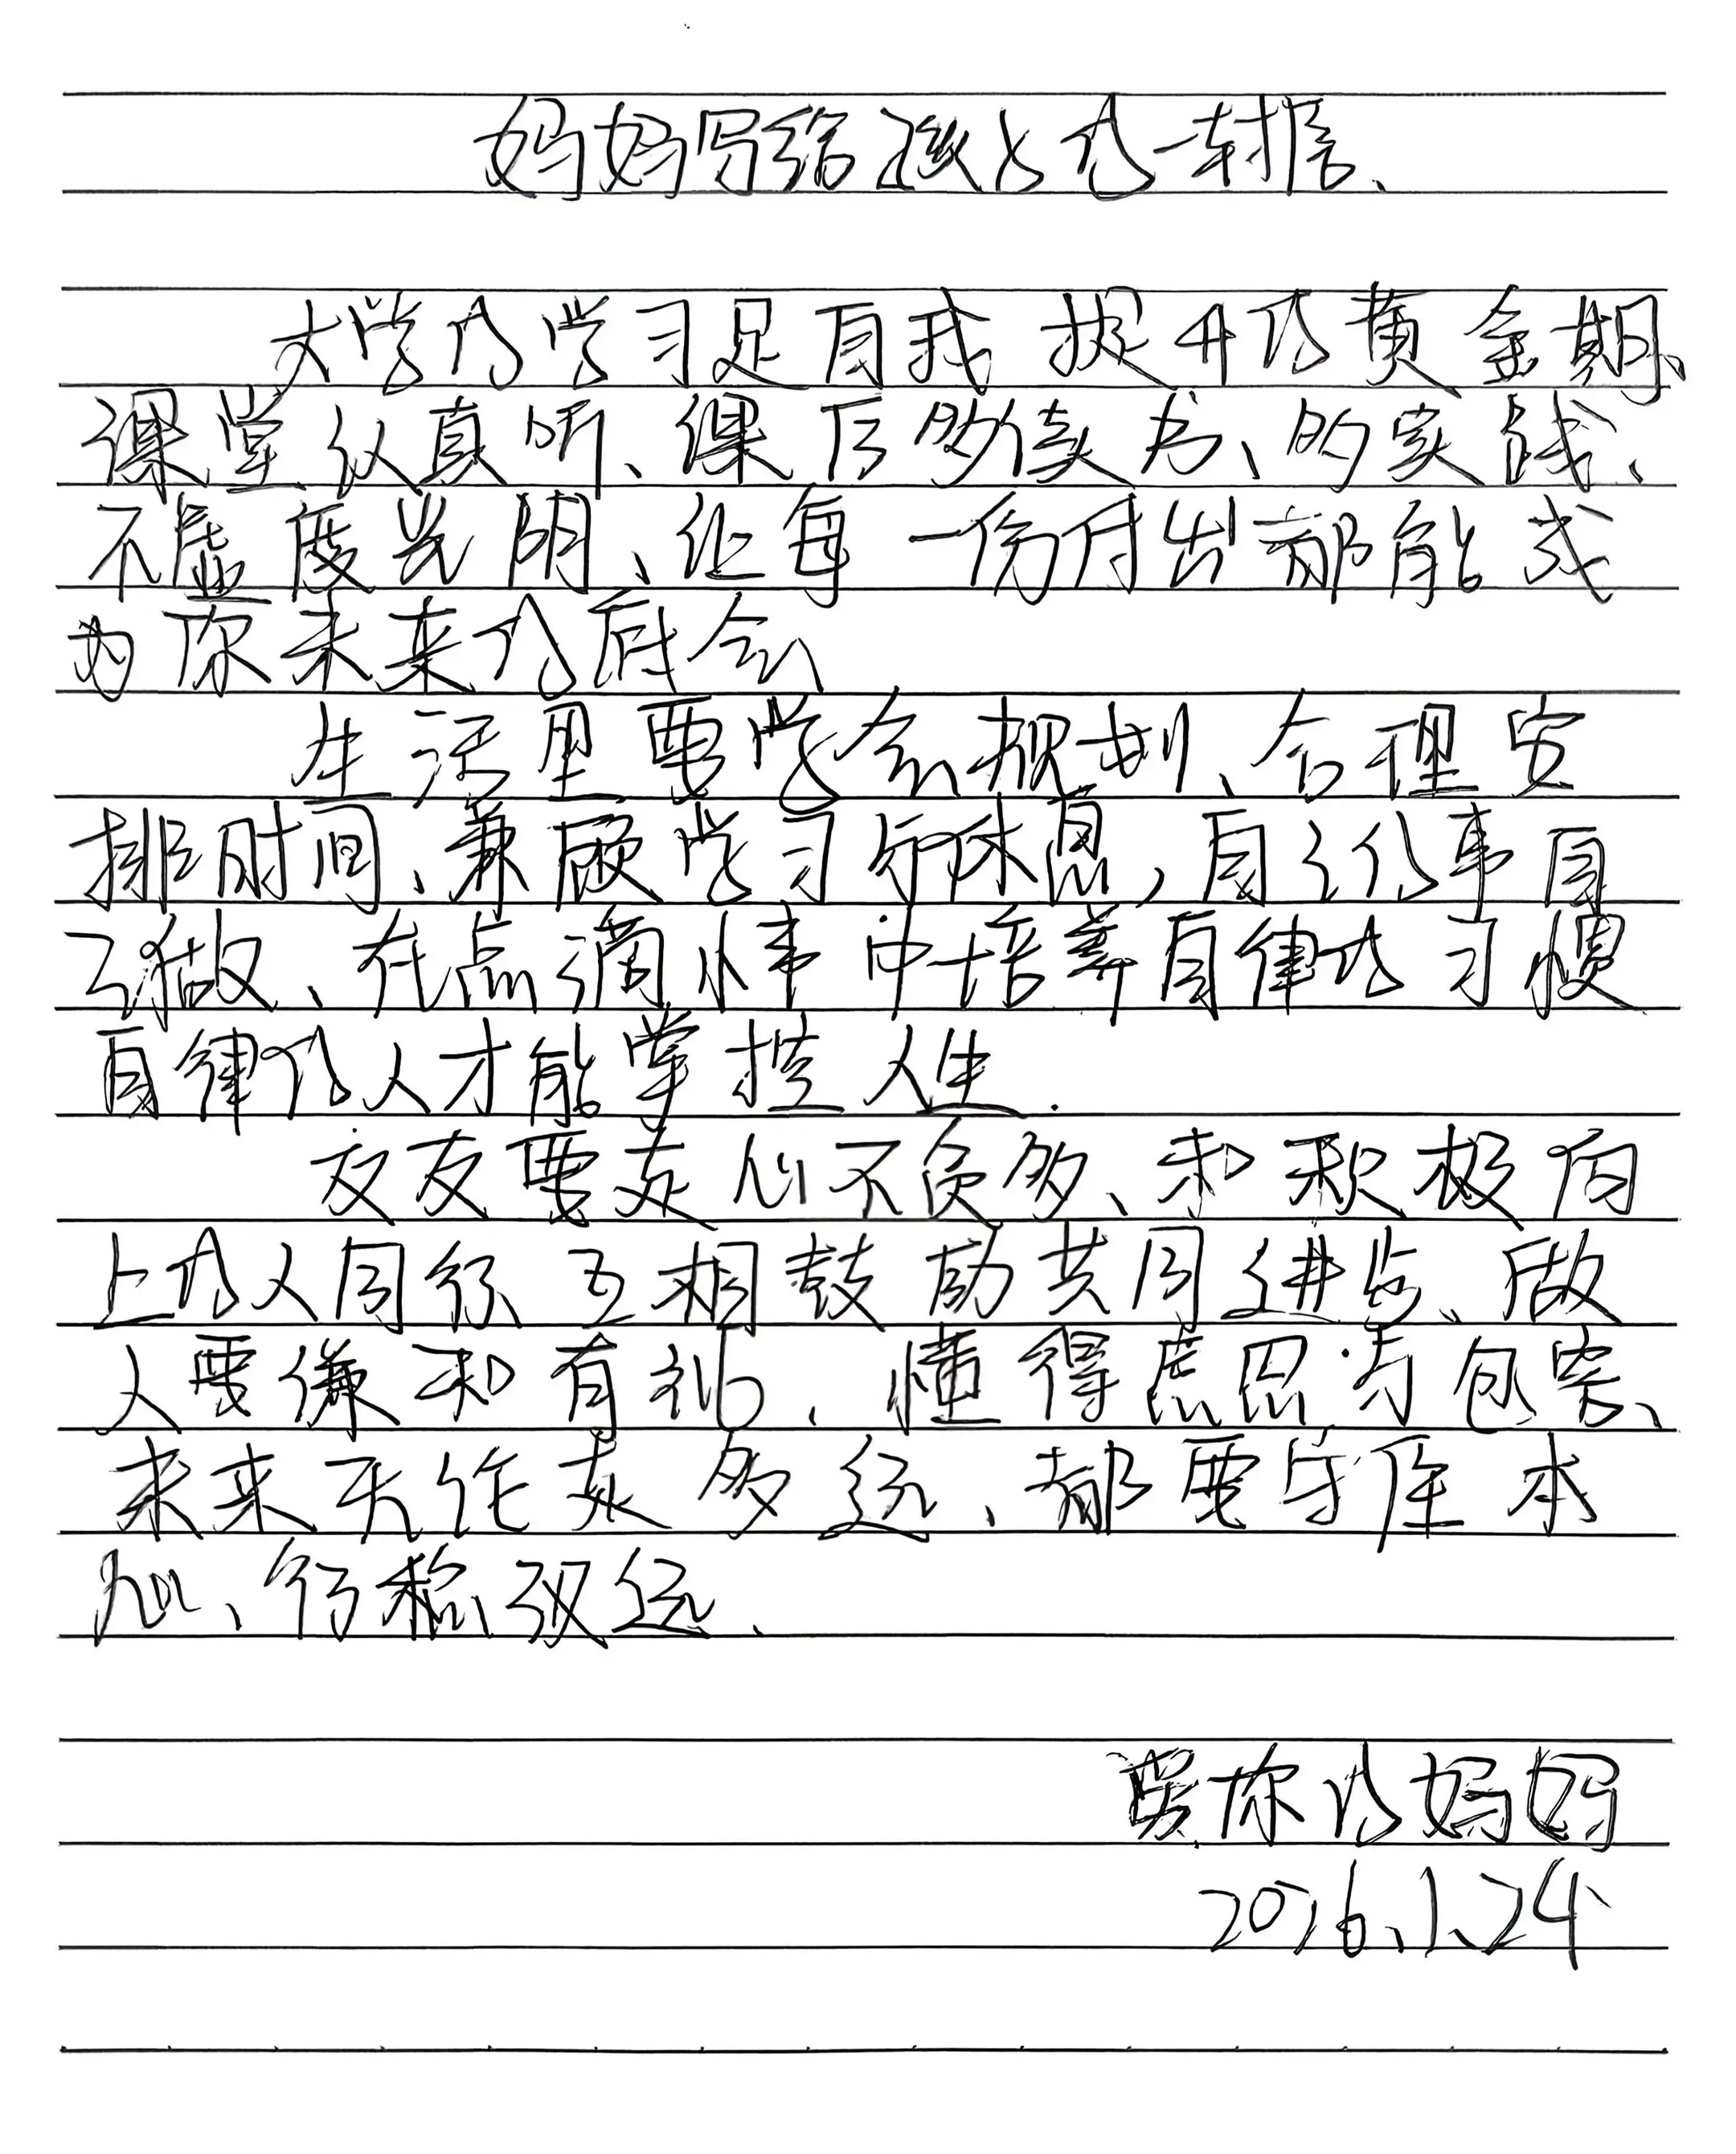 妈妈写给孩子的一封信、
大学的学习是自我提升的黄金期、
课堂认真听、课后多读书、多实践、
不虚度光阴、让每一份付出都能成
为你未来的底气
生活里要学会规划、合理安
排时间、兼顾学习与休息,自己的事自
己做、在点滴小事中培养自律的习惯
自律的人才能掌控人生.
交友要走心不贪多、和积极向
上的人同行、互相鼓励共同进步、做
人要谦和有礼、懂得感恩与包容、
未来无论走多远、都要守住本
心、行稳致远、
爱你的妈妈
2026.1.24